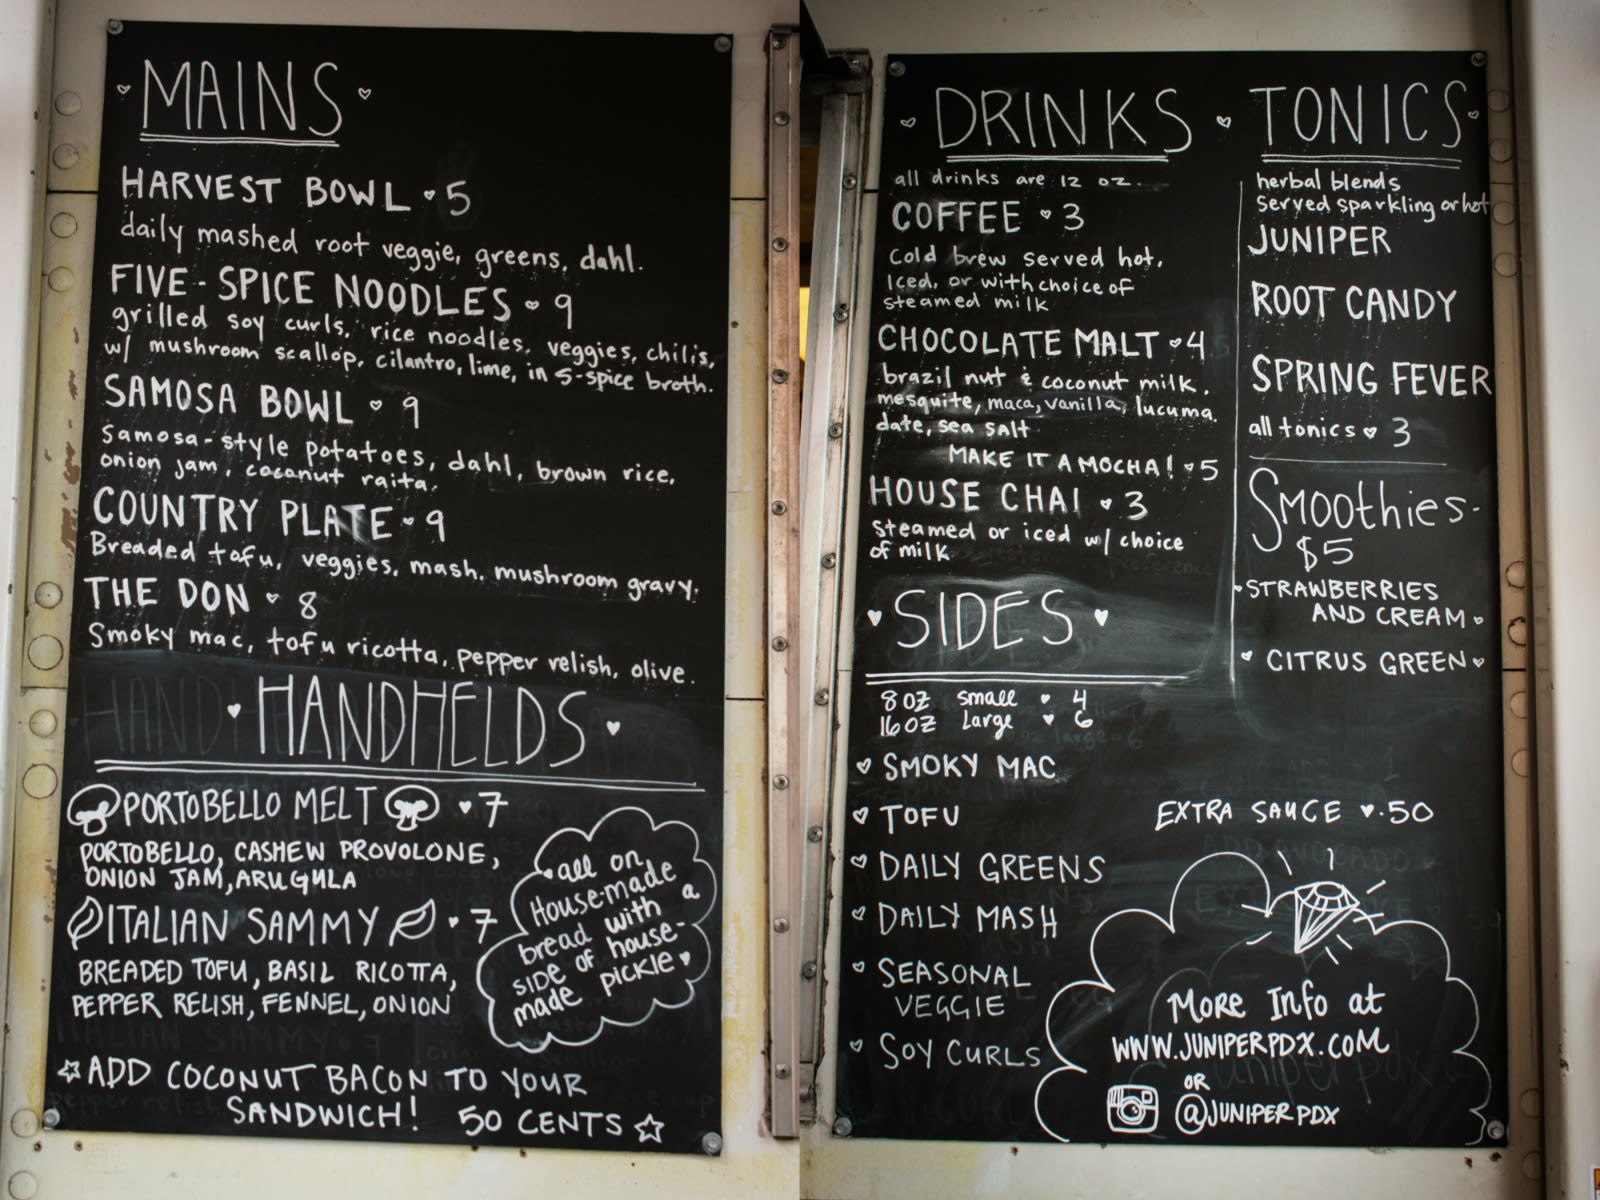 MAINS
HARVEST BOWL 5
daily mashed root veggie, greens, dahl.
FIVE-SPICE NOODLES 9
grilled soy curls, rice noodles, veggies, chilis,
w/ mushroom scallop, cilantro, lime, in 5-spice broth.
SAMOSA BOWL 9
Samosa-style potatoes, dahl, brown rice,
onion jam, coconut raita.
COUNTRY PLATE 9
Breaded tofu, veggies, mash, mushroom gravy.
THE DON 8
Smoky mac, tofu ricotta, pepper relish, olive.
HANDHELDS
PORTOBELLO MELT 7
PORTOBELLO, CASHEW PROVOLONE,
ONION JAM, ARUGULA
ITALIAN SAMMY 7
BREADED TOFU, BASIL RICOTTA,
PEPPER RELISH, FENNEL, ONION
all on
House-made
bread with a
side of house-
made pickle
ADD COCONUT BACON TO YOUR
SANDWICH! 50 CENTS
DRINKS
all drinks are 12 oz.
COFFEE 3
Cold brew served hot,
Iced, or with choice of
steamed milk
CHOCOLATE MALT 4
brazil nut & coconut milk,
mesquite, maca, vanilla, lucuma
date, sea salt
MAKE IT A MOCHA! 5
HOUSE CHAI 3
Steamed or iced w/ choice
of milk
TONICS
herbal blends
served sparkling or hot
JUNIPER
ROOT CANDY
SPRING FEVER
all tonics 3
SMOOTHIES-
$5
STRAWBERRIES
AND CREAM
CITRUS GREEN
SIDES
8 OZ small 4
16 OZ Large 6
SMOKY MAC
TOFU
DAILY GREENS
DAILY MASH
SEASONAL
VEGGIE
SOY CURLS
EXTRA SAUCE .50
MORE Info at
WWW.JUNIPERPDX.COM
OR
@JUNIPERPDX